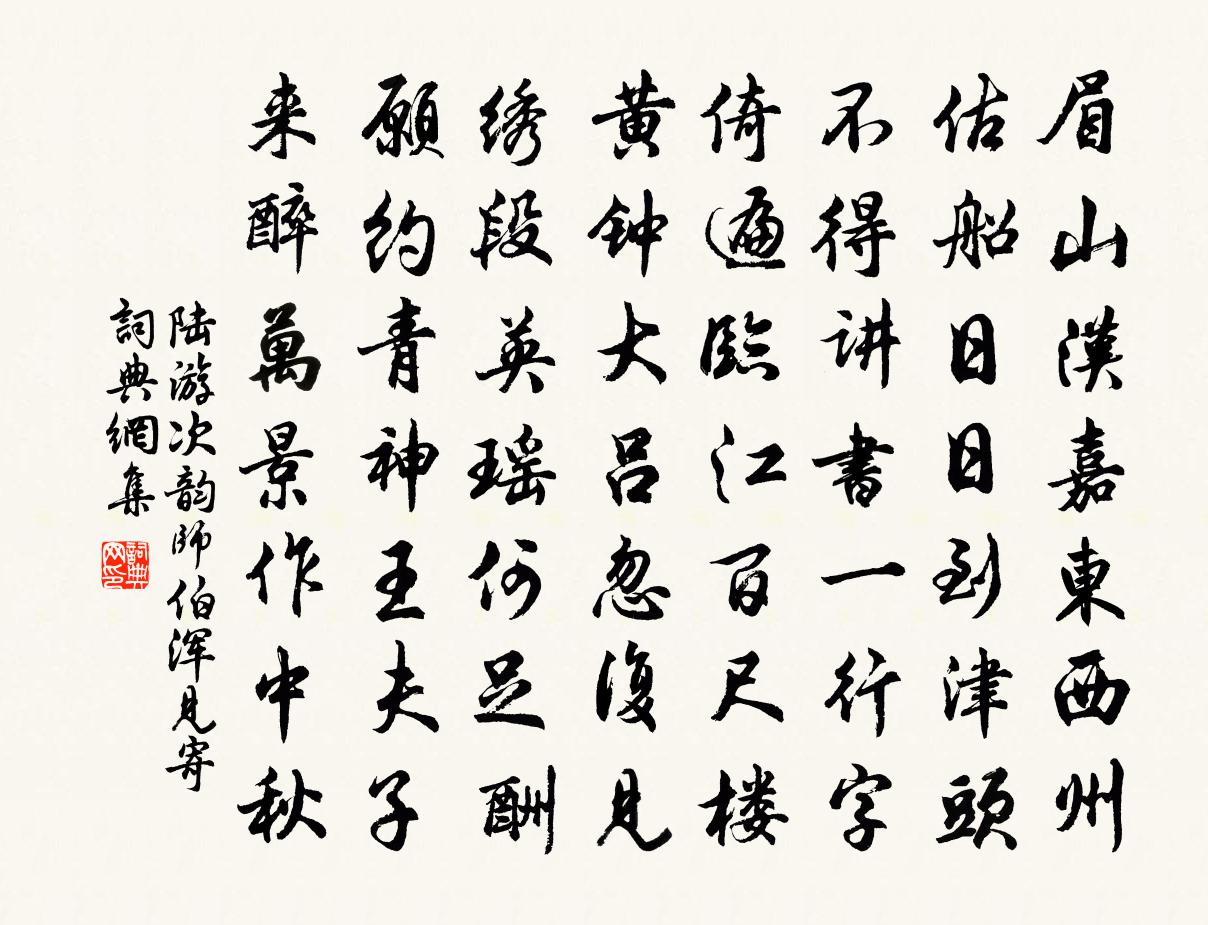 眉山漢嘉東西州
估船日日到津頭
不得讲書一行字
倚遍臨江百尺楼
黄钟大吕忽復見
绣段英瑶何足酬
願约青神王夫子
来醉萬景作中秋
陆游次韵師伯浑見寄
詞典網集
詞典网印